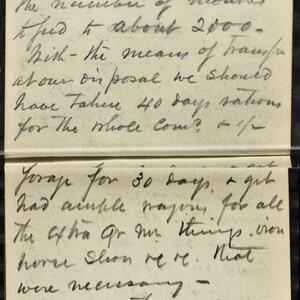 the number of mouths
to feed to about 2000 -
With - the means of transp
at our disposal we should
have taken 40 days rations
for the whole Com^d. &
forage for 30 days, & yet
had ample wagons for all
the extra Qr Mr. things, iron
horse shoes &c &c. that
were necessary -